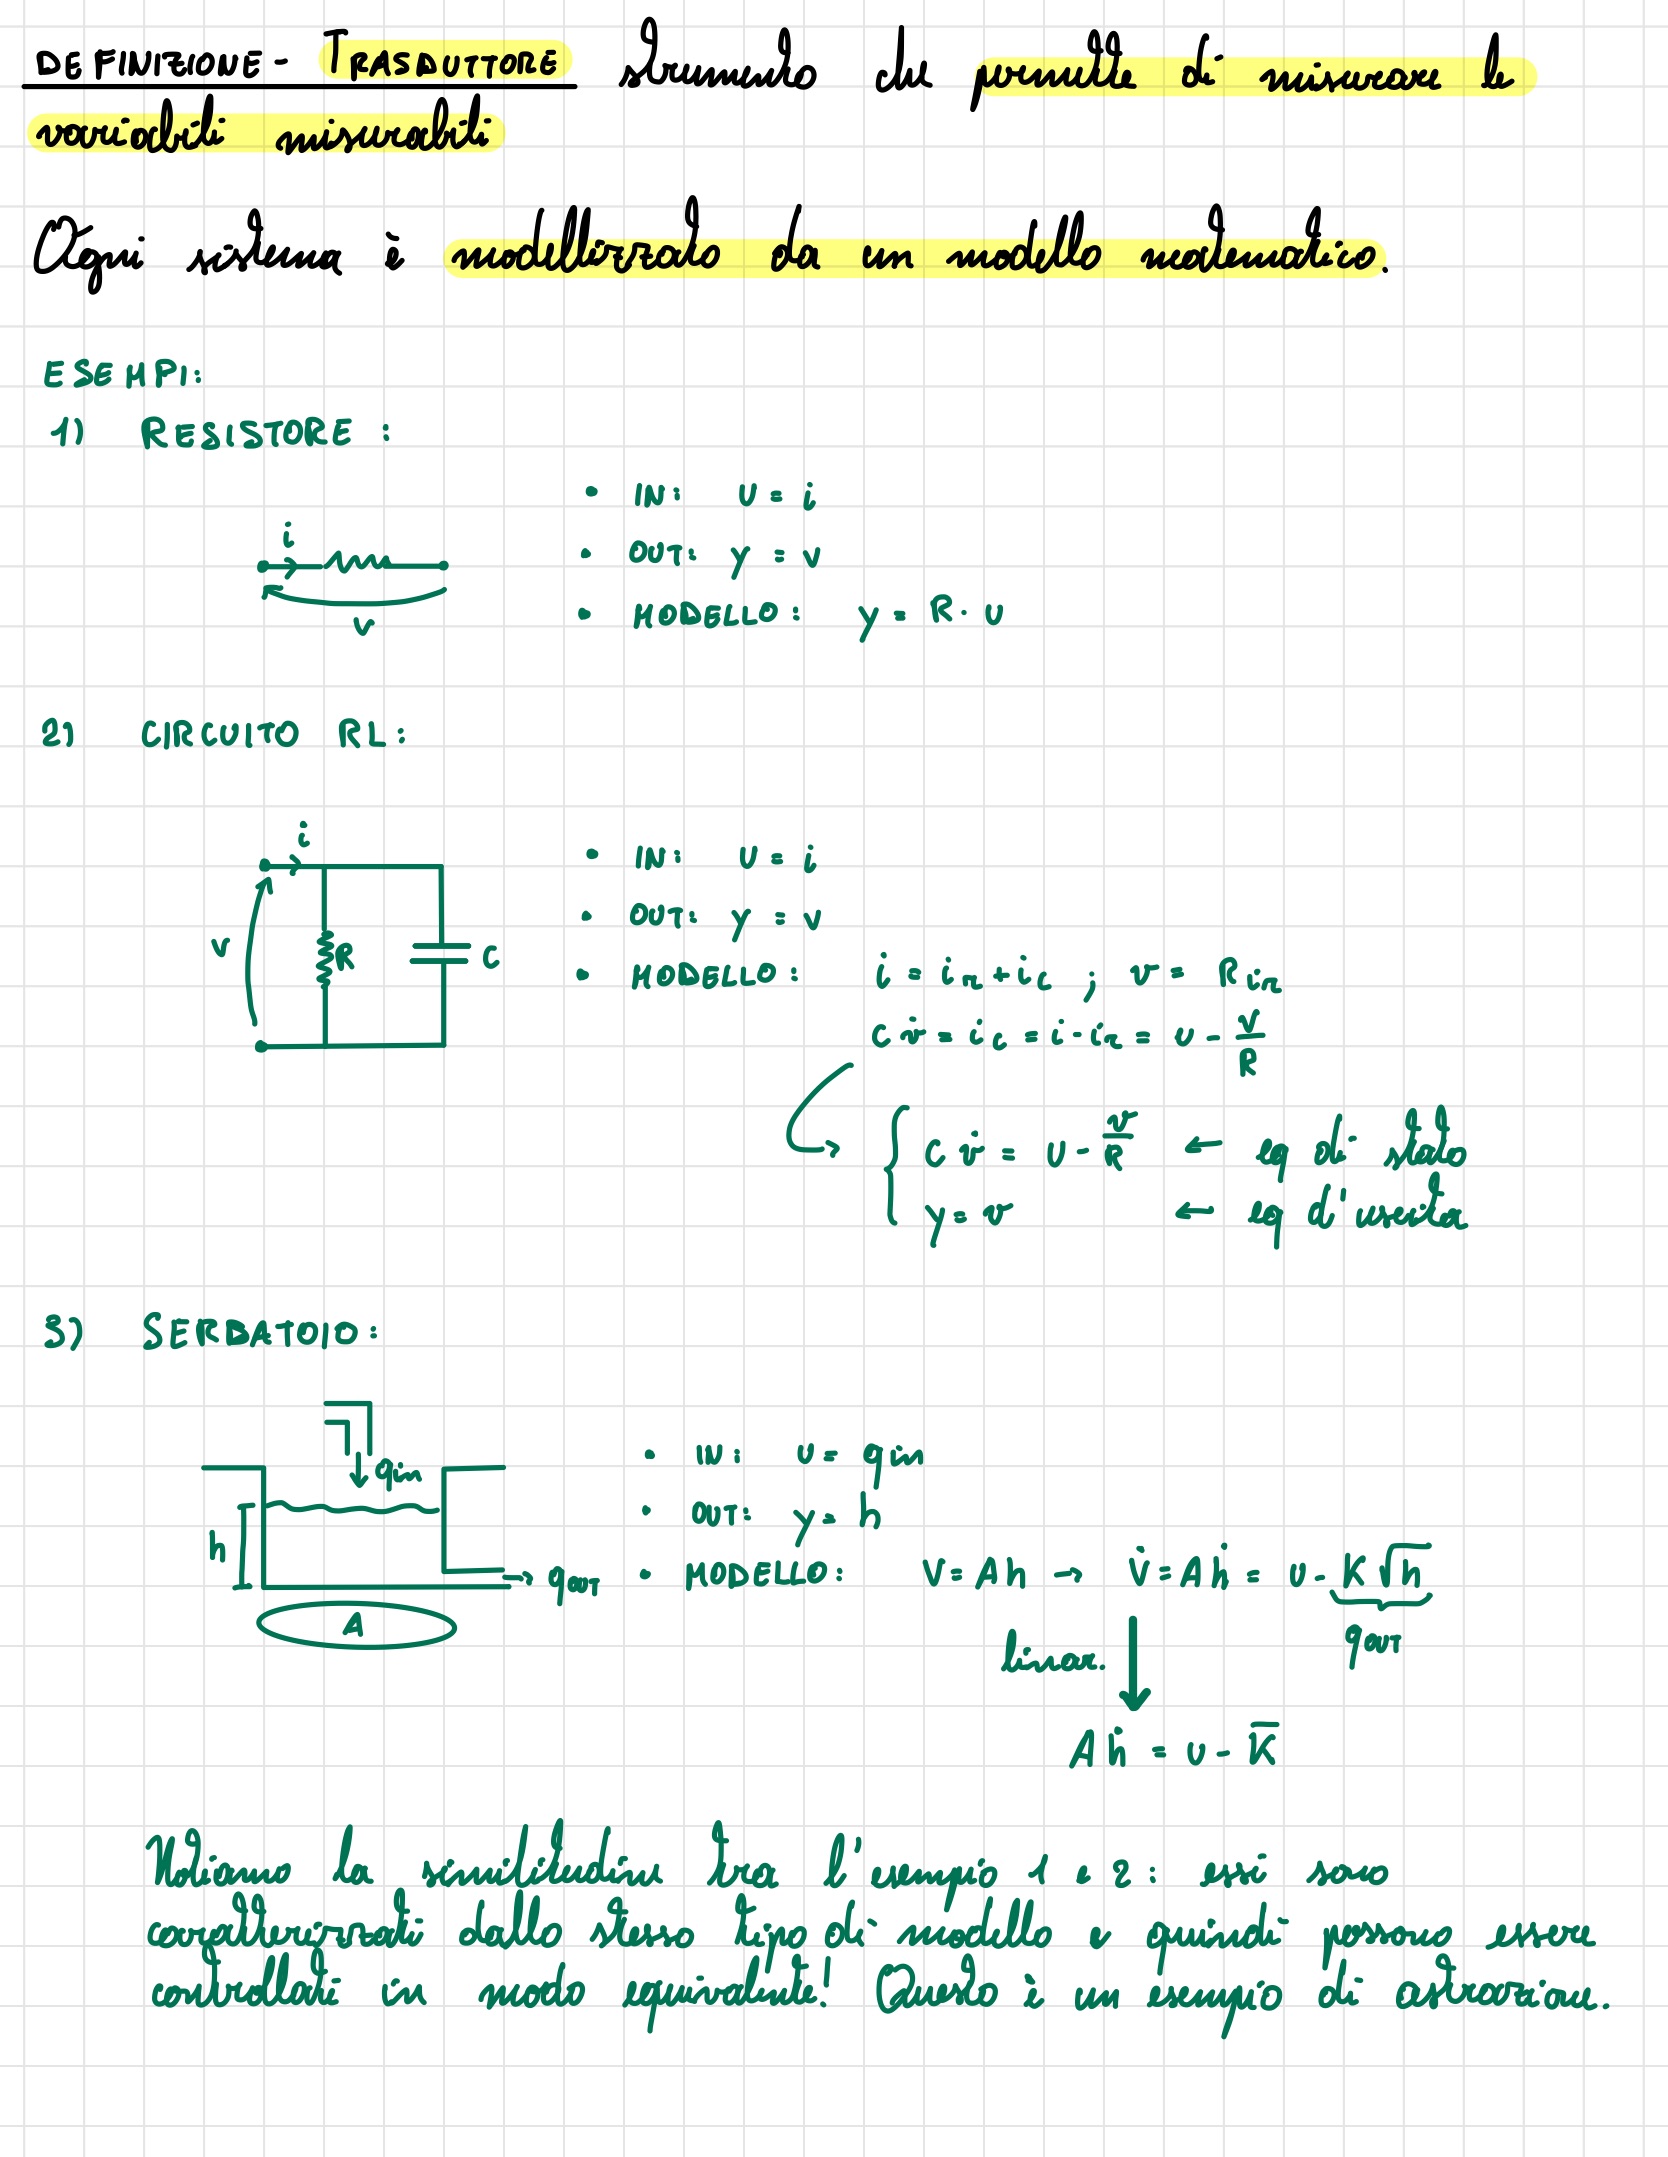 DEFINIZIONE - TRASDUTTORE strumento che permette di misurare le
variabili misurabili
Ogni sistema è modellizzato da un modello matematico.
ESEMPI:
1) RESISTORE :
• IN: U = i
i
• OUT: y = v
v
• MODELLO: y = R · U
2) CIRCUITO RL:
i
• IN: U = i
• OUT: y = v
v R C
• MODELLO: i = i_r + i_c ; v = R i_r
C v̇ = i_c = i - i_r = u - v/R
{ C v̇ = U - v/R ← eq di stato
y = v ← eq d'uscita
3) SERBATOIO:
q_in
• IN: U = q_in
• OUT: y = h
h
→ q_OUT
• MODELLO: V = Ah → V̇ = Aḣ = U - K√h
A
q_OUT
linear.
Aḣ = U - K̅
Notiamo la similitudine tra l'esempio 1 e 2 : essi sono
caratterizzati dallo stesso tipo di modello e quindi possono essere
controllati in modo equivalente! Questo è un esempio di astrazione.